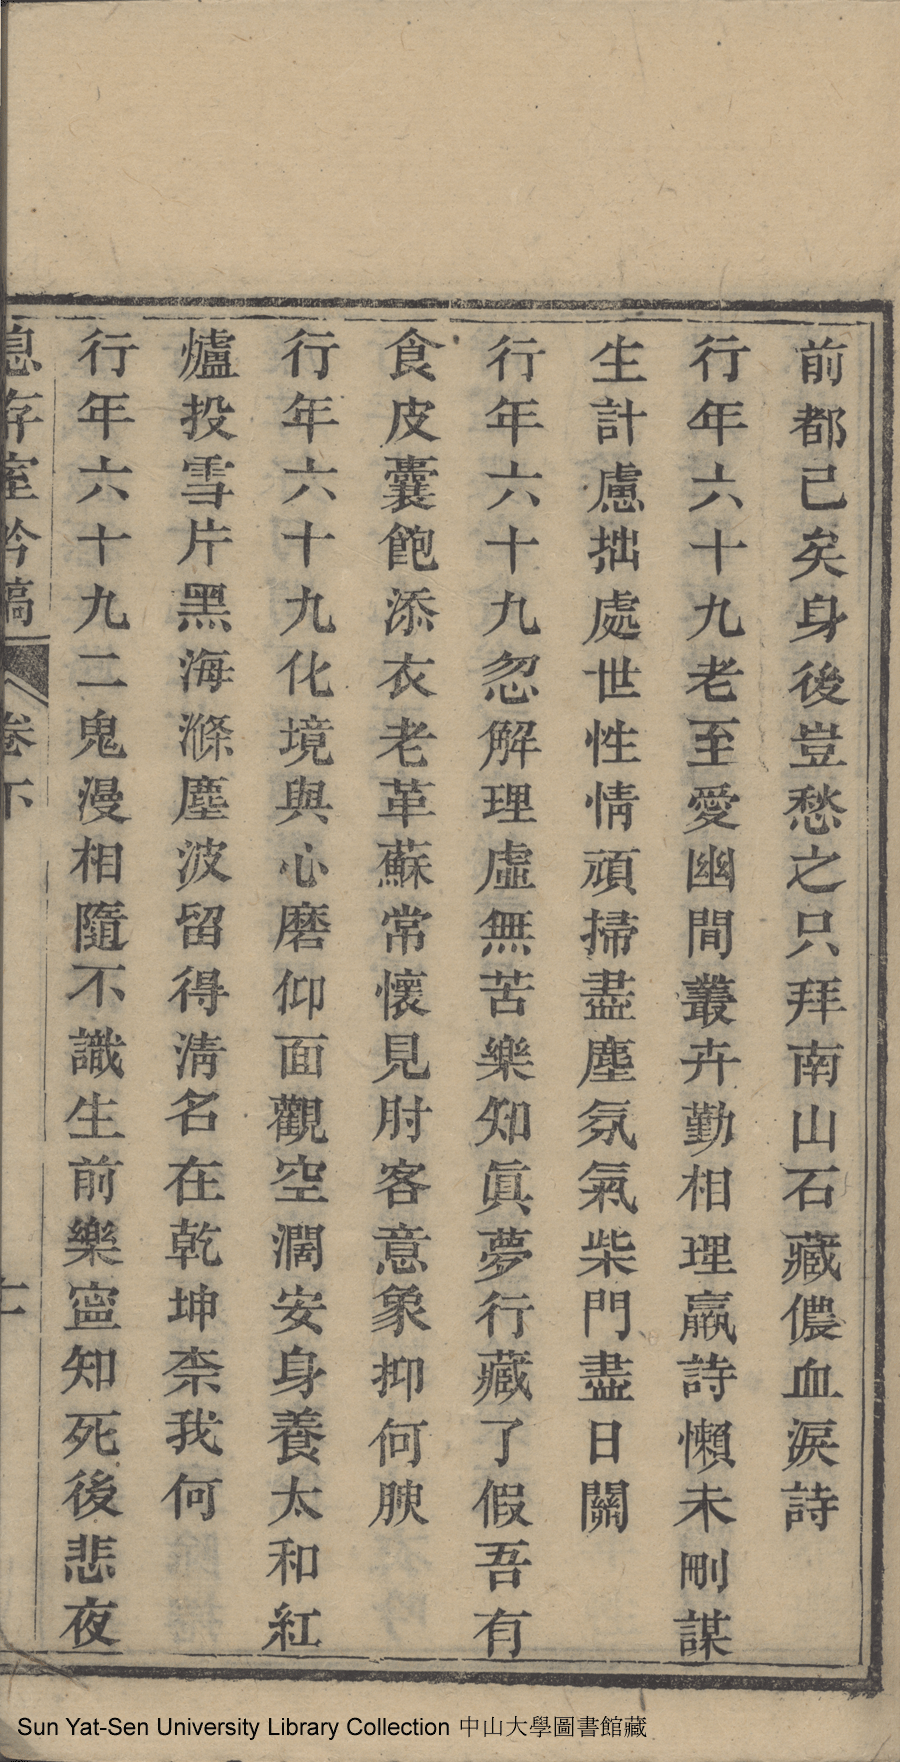 前都已矣身後豈愁之只拜南山石藏儂血淚詩
行年六十九老至愛幽間叢卉勤相理羸詩懶未刪謀
生計慮拙處世性情頑掃盡塵氛氣柴門盡日關
行年六十九忽解理虛無苦樂知眞夢行藏了假吾有
食皮囊飽添衣老革蘇常懷見肘客意象抑何腴
行年六十九化境與心磨仰面觀空濶安身養太和紅
爐投雪片黑海滌塵波留得淸名在乾坤柰我何
行年六十九二鬼漫相隨不識生前樂寍知死後悲夜
息存室吟稿 卷下 十一
Sun Yat-Sen University Library Collection 中山大學圖書館藏